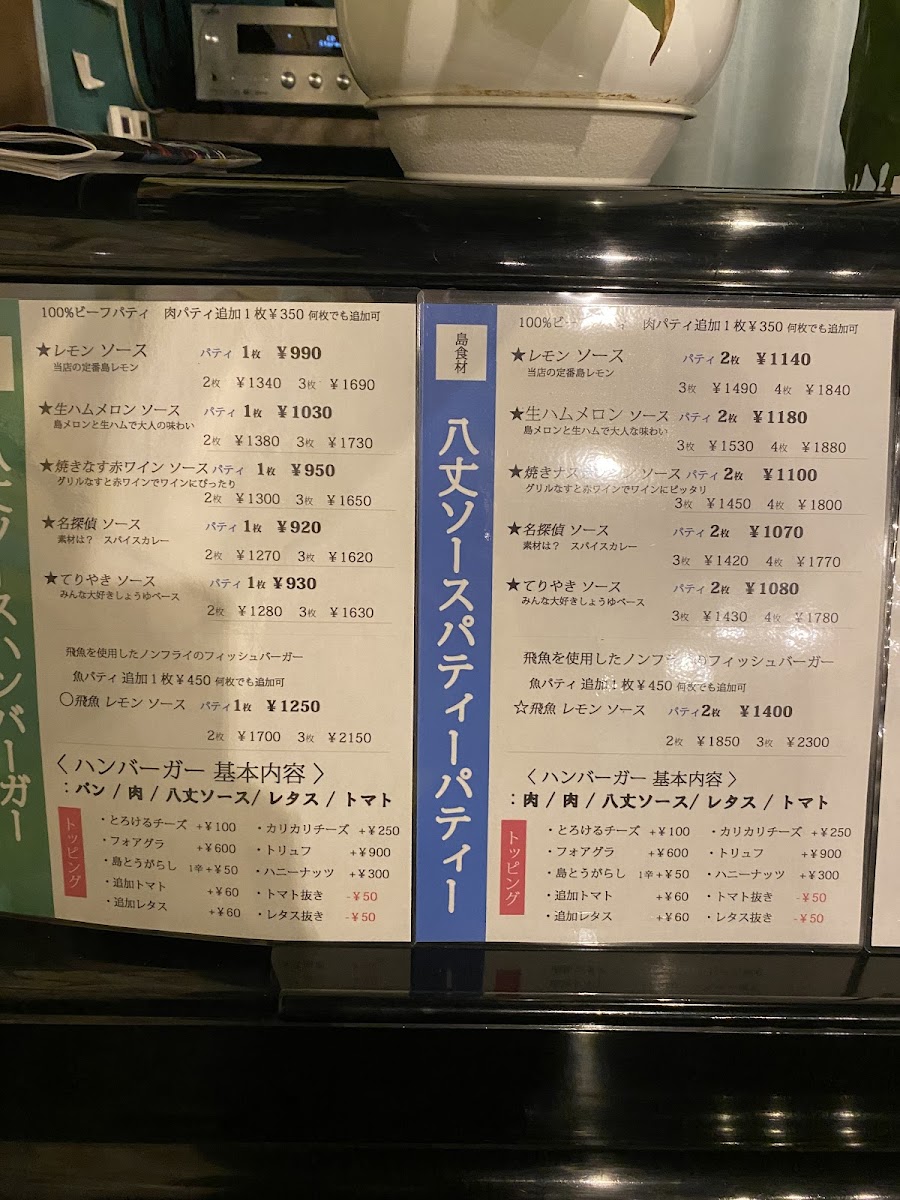 100%ビーフパティ　肉パティ追加1枚¥350 何枚でも追加可
★レモン ソース　パティ 1枚 ¥990
当店の定番島レモン
2枚 ¥1340 3枚 ¥1690
★生ハムメロン ソース　パティ 1枚 ¥1030
島メロンと生ハムで大人の味わい
2枚 ¥1380 3枚 ¥1730
★焼きなす赤ワイン ソース パティ 1枚 ¥950
グリルなすと赤ワインでワインにぴったり
2枚 ¥1300 3枚 ¥1650
★名探偵 ソース　パティ 1枚 ¥920
素材は？ スパイスカレー
2枚 ¥1270 3枚 ¥1620
★てりやき ソース　パティ 1枚 ¥930
みんな大好きしょうゆベース
2枚 ¥1280 3枚 ¥1630
飛魚を使用したノンフライのフィッシュバーガー
魚パティ 追加1枚¥450 何枚でも追加可
〇飛魚 レモン ソース パティ1枚 ¥1250
2枚 ¥1700 3枚 ¥2150
〈 ハンバーガー 基本内容 〉
：パン / 肉 / 八丈ソース/ レタス / トマト
トッピング
・とろけるチーズ +¥100 ・カリカリチーズ +¥250
・フォアグラ +¥600 ・トリュフ +¥900
・島とうがらし 1辛+¥50 ・ハニーナッツ +¥300
・追加トマト +¥60 ・トマト抜き -¥50
・追加レタス +¥60 ・レタス抜き -¥50
島食材
八丈ソースパティーパティー
100%ビー　肉パティ追加1枚¥350 何枚でも追加可
★レモン ソース　パティ 2枚 ¥1140
当店の定番島レモン
3枚 ¥1490 4枚 ¥1840
★生ハムメロン ソース パティ 2枚 ¥1180
島メロンと生ハムで大人な味わい
3枚 ¥1530 4枚 ¥1880
★焼きナス ソース パティ 2枚 ¥1100
グリルなすと赤ワインでワインにピッタリ
3枚 ¥1450 4枚 ¥1800
★名探偵 ソース　パティ 2枚 ¥1070
素材は？ スパイスカレー
3枚 ¥1420 4枚 ¥1770
★てりやき ソース　パティ 2枚 ¥1080
みんな大好きしょうゆベース
3枚 ¥1430 4枚 ¥1780
飛魚を使用したノンフライのフィッシュバーガー
魚パティ 追加1枚¥450 何枚でも追加可
☆飛魚 レモン ソース パティ2枚 ¥1400
2枚 ¥1850 3枚 ¥2300
〈 ハンバーガー 基本内容 〉
：肉 / 肉 / 八丈ソース/ レタス / トマト
トッピング
・とろけるチーズ +¥100 ・カリカリチーズ +¥250
・フォアグラ +¥600 ・トリュフ +¥900
・島とうがらし 1辛+¥50 ・ハニーナッツ +¥300
・追加トマト +¥60 ・トマト抜き -¥50
・追加レタス +¥60 ・レタス抜き -¥50